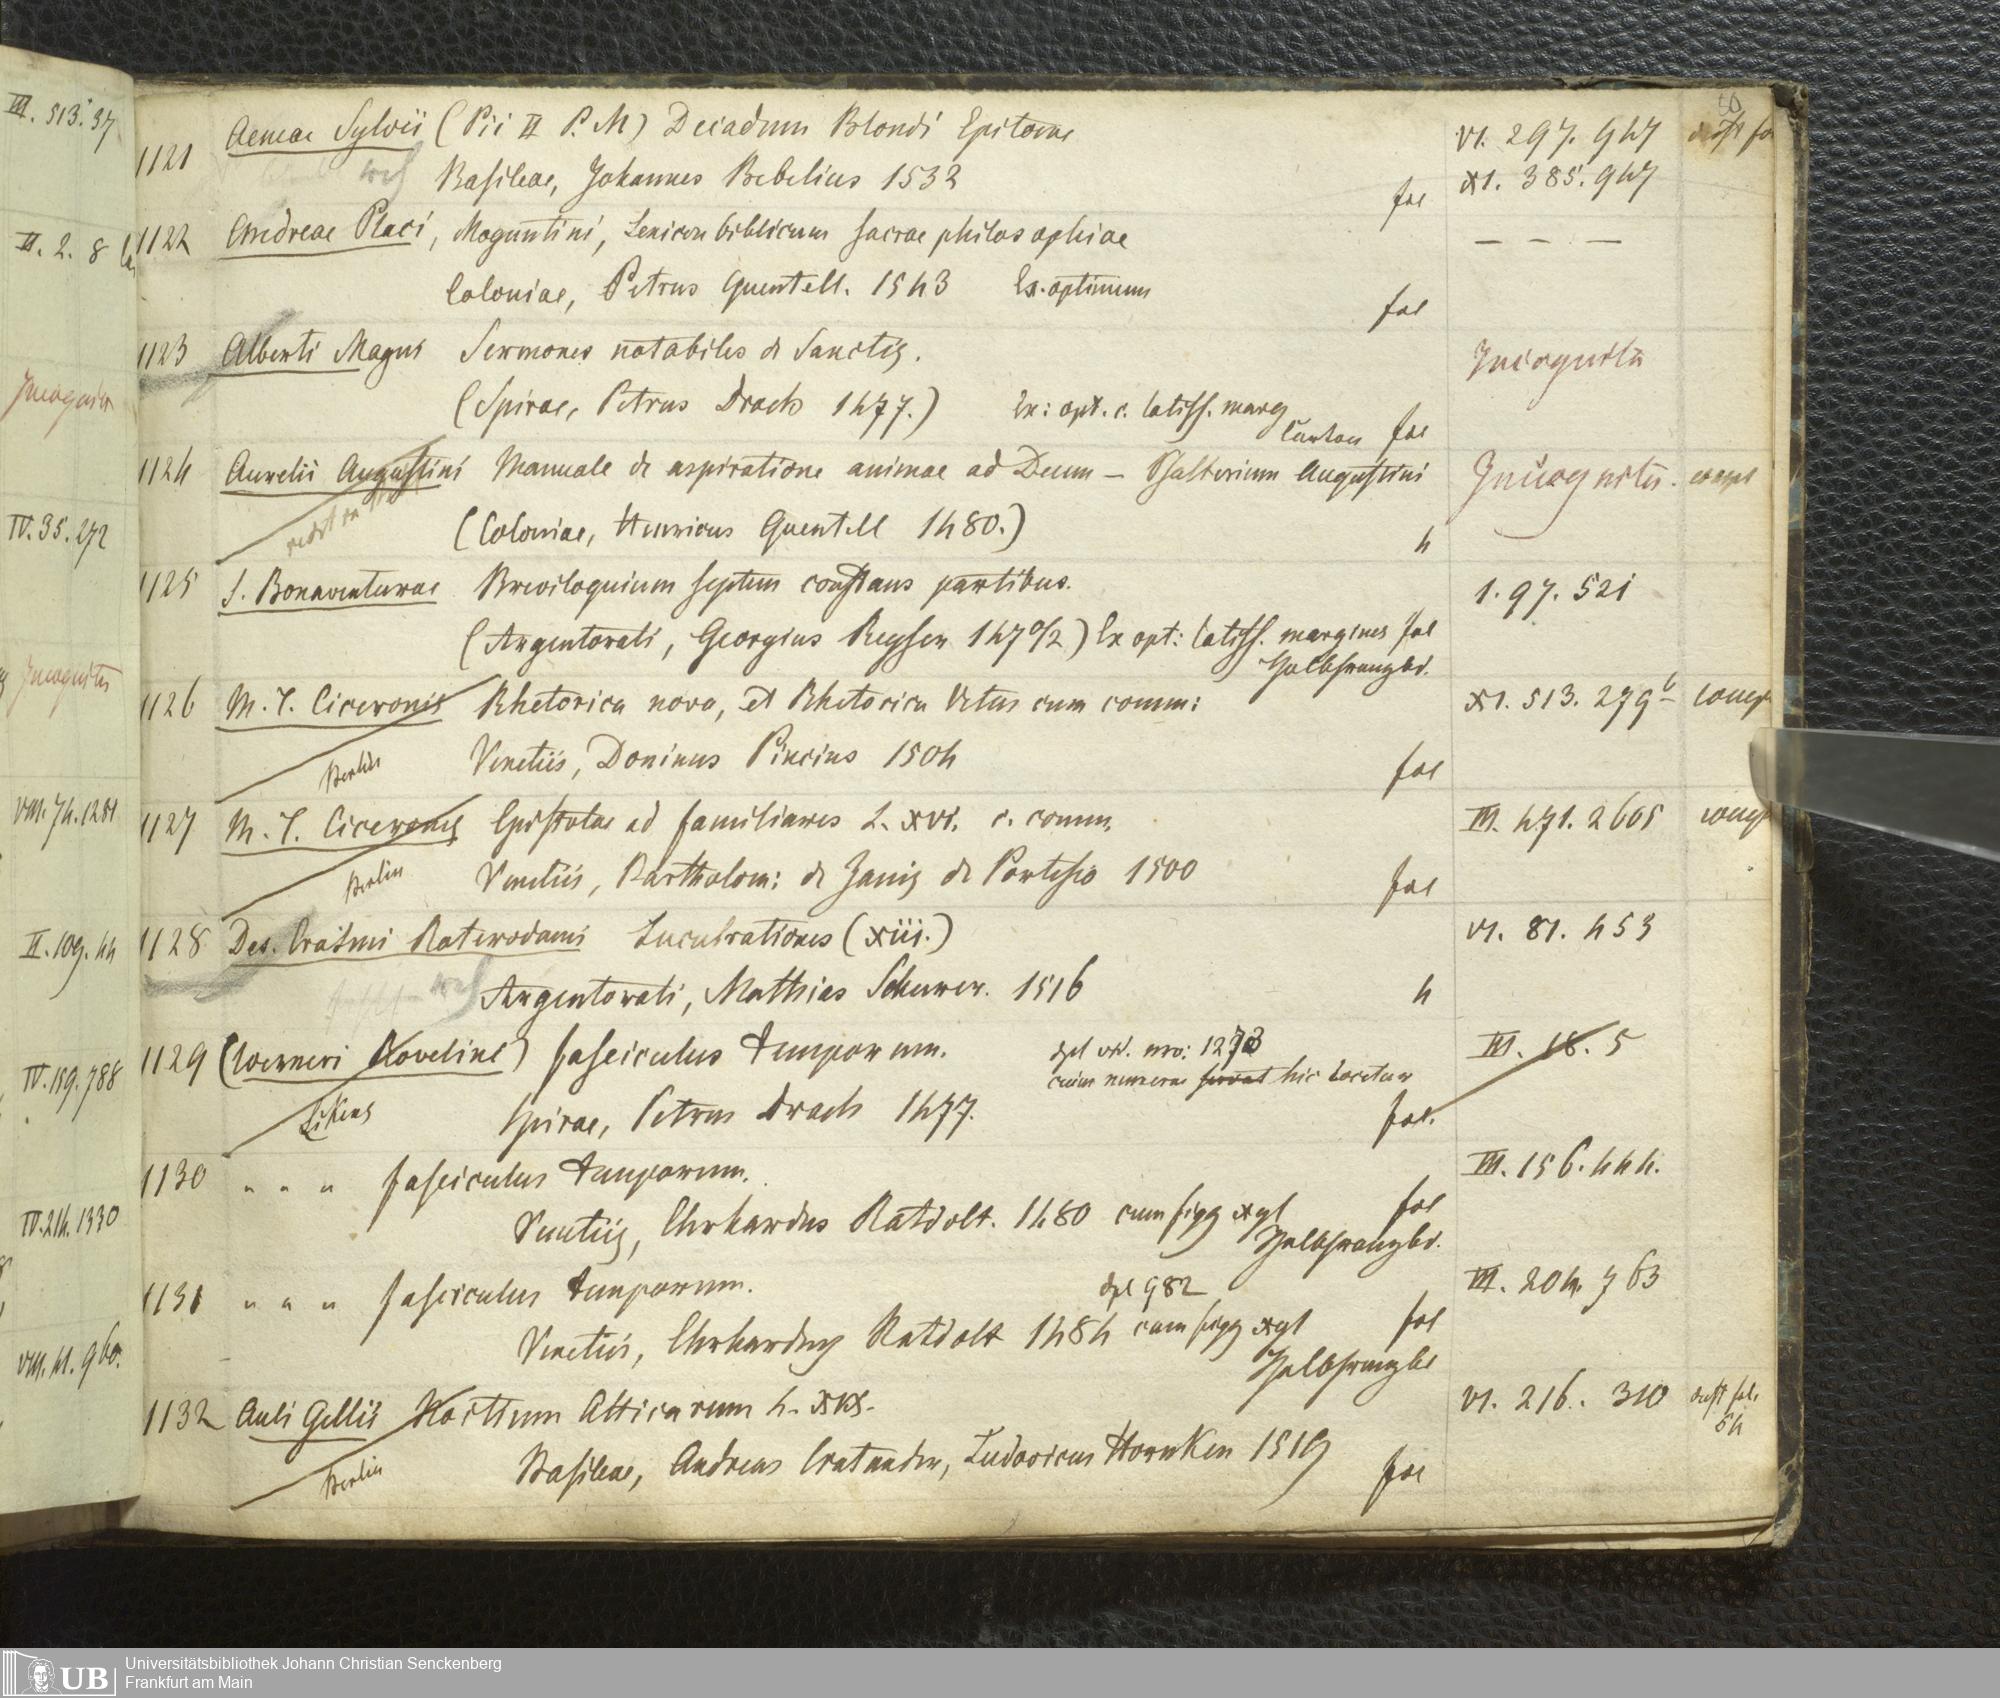 III. 513. 37
II. 2. 8
Incognita
IV. 35. 272
Incognita
VIII. 74. 1281
II. 109. 44
IV. 159. 788
IV. 214. 1330
VIII. 41. 960.
50
1121 Aeneae Sylvii (Pii II P. M) Decadum Blondi Epitome VI. 297. 947
Basileae, Johannes Bebelius 1533 fol XI. 385. 947
1122 Andreae Placi, Moguntini, Lexicon biblicum sacrae philosophiae — — —
Coloniae, Petrus Quentell. 1543 Ex. optimum fol
1123 Alberti Magni Sermones notabiles de Sanctis. Incognita
(Spirae, Petrus Drach 1477.) Ex: opt. c. latiss. marg
Carton fol
1124 Aurelii Augustini Manuale de aspiratione animae ad Deum — Psalterium Augustini Incognita. compl
(Coloniae, Henricus Quentell 1480.) 4
1125 S. Bonaventurae Breviloquium septem constans partibus. 1. 97. 521
(Argentorati, Georgius Reyser 1470/2) Ex opt: latiss. margines fol
Halbfranzbd.
1126 M. T. Ciceronis Rhetorica nova, et Rhetorica Vetus cum comm: XI. 513. 279b compl
Berlin Venetiis, Doninus Pincius 1504 fol
1127 M. T. Ciceronis Epistolae ad familiares L. XVI. c. comm. III. 471. 2605 compl
Berlin Venetiis, Bartholom: de Zanis de Portesio 1500 fol
1128 Des. Erasmi Roterodami Lucubrationes (xiii.) VI. 81. 453
Argentorati, Matthias Schurer. 1516 4
1129 (Werneri Rovelinc) fasciculus temporum. dpl vid. nro: 1273 III. 18. 5
cuius numerus servat hic locetur
Likens Spirae, Petrus Drach 1477. fol.
1130 " " " fasciculus temporum. III. 156. 444.
Venetiis, Ehrhardus Ratdolt. 1480 cum figg xyl fol
Halbfranzbd.
1131 " " " fasciculus temporum. dpl 982 III. 204. 763
Venetiis, Ehrhardus Ratdolt 1484 cum figg xyl fol
Halbfranzbd
1132 Auli Gellii Noctium Atticarum L. XIX. VI. 216. 310 deest fol.
54
Berlin Basileae, Andreas Cratander, Ludovicus Hornken 1519 fol
UB Universitätsbibliothek Johann Christian Senckenberg
Frankfurt am Main